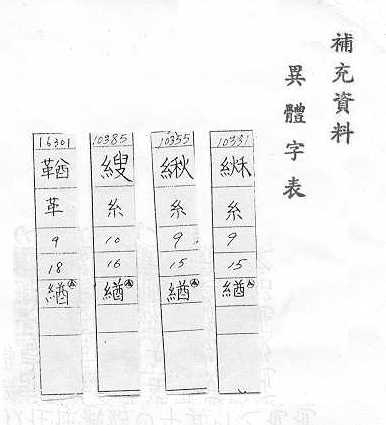 補充資料
異體字表
10331
糸
9
15
緧
10355
䋺
糸
9
15
緧
10385
糸
10
16
緧
16301
鞧
革
9
18
緧